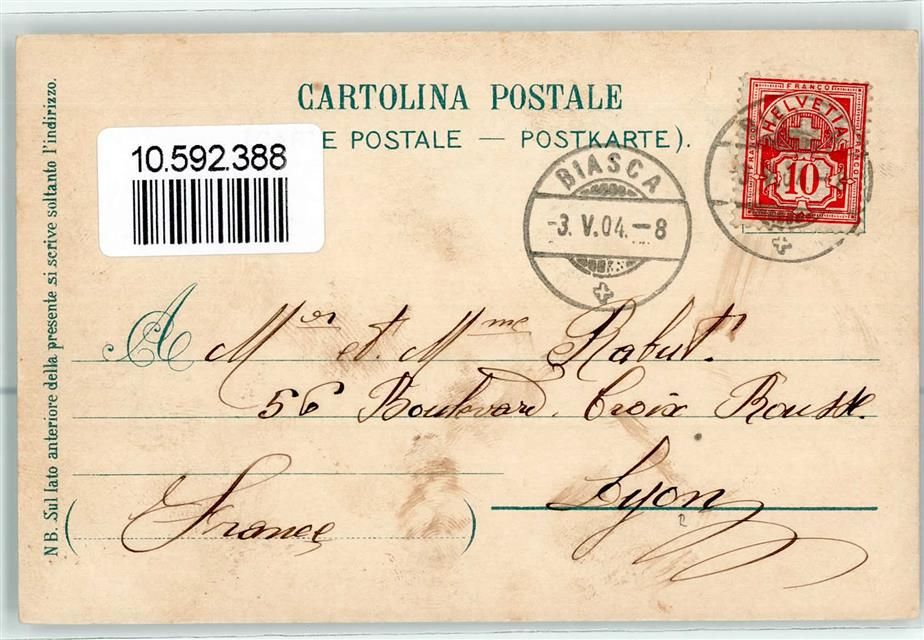 CARTOLINA POSTALE
E POSTALE — POSTKARTE).
10.592.388
BIASCA
-3. V. 04. -8
FRANCO
HELVETIA
FRANCO
FRANCO
10
NB. Sul lato anteriore della presente si scrive soltanto l'indirizzo.
A Mr et. Mme Rabut.
56 Boulevard. Croix Rousse.
Lyon
(France)